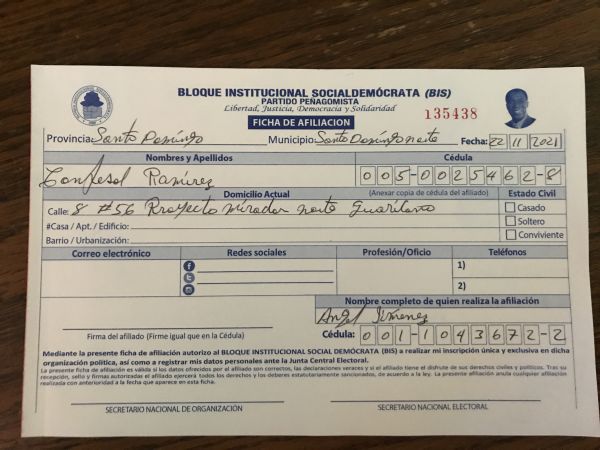 BLOQUE INSTITUCIONAL SOCIALDEMÓCRATA (BIS)
PARTIDO PEÑAGOMISTA
Libertad, Justicia, Democracia y Solidaridad
FICHA DE AFILIACION
135438
Provincia: Santo Domingo Municipio: Santo Domingo norte Fecha: 22 11 2021
Nombres y Apellidos Cédula
Confesol Ramirez 005-0025462-8
Domicilio Actual (Anexar copia de cédula del afiliado) Estado Civil
Calle: 8 #56 Proyecto mirador norte Guaricano Casado
#Casa / Apt. / Edificio: Soltero
Barrio / Urbanización: Conviviente
Correo electrónico Redes sociales Profesión/Oficio Teléfonos
1)
2)
Nombre completo de quien realiza la afiliación
Angel Jimenez
Firma del afiliado (Firme igual que en la Cédula) Cédula: 001-1043672-2
Mediante la presente ficha de afiliación autorizo al BLOQUE INSTITUCIONAL SOCIAL DEMÓCRATA (BIS) a realizar mi inscripción única y exclusiva en dicha
organización política, así como a registrar mis datos personales ante la Junta Central Electoral.
La presente ficha de afiliación es válida si los datos ofrecidos por el afiliado son correctos, las declaraciones veraces y si el afiliado tiene el disfrute de sus derechos civiles y políticos. Tras su
recepción, sello y firmas autorizadas el afiliado ejercerá todos los derechos y los deberes estatutariamente sancionados, de acuerdo a la ley. La presente afiliación anula cualquier afiliación
realizada con anterioridad a la fecha que aparece en esta ficha.
SECRETARIO NACIONAL DE ORGANIZACIÓN SECRETARIO NACIONAL ELECTORAL